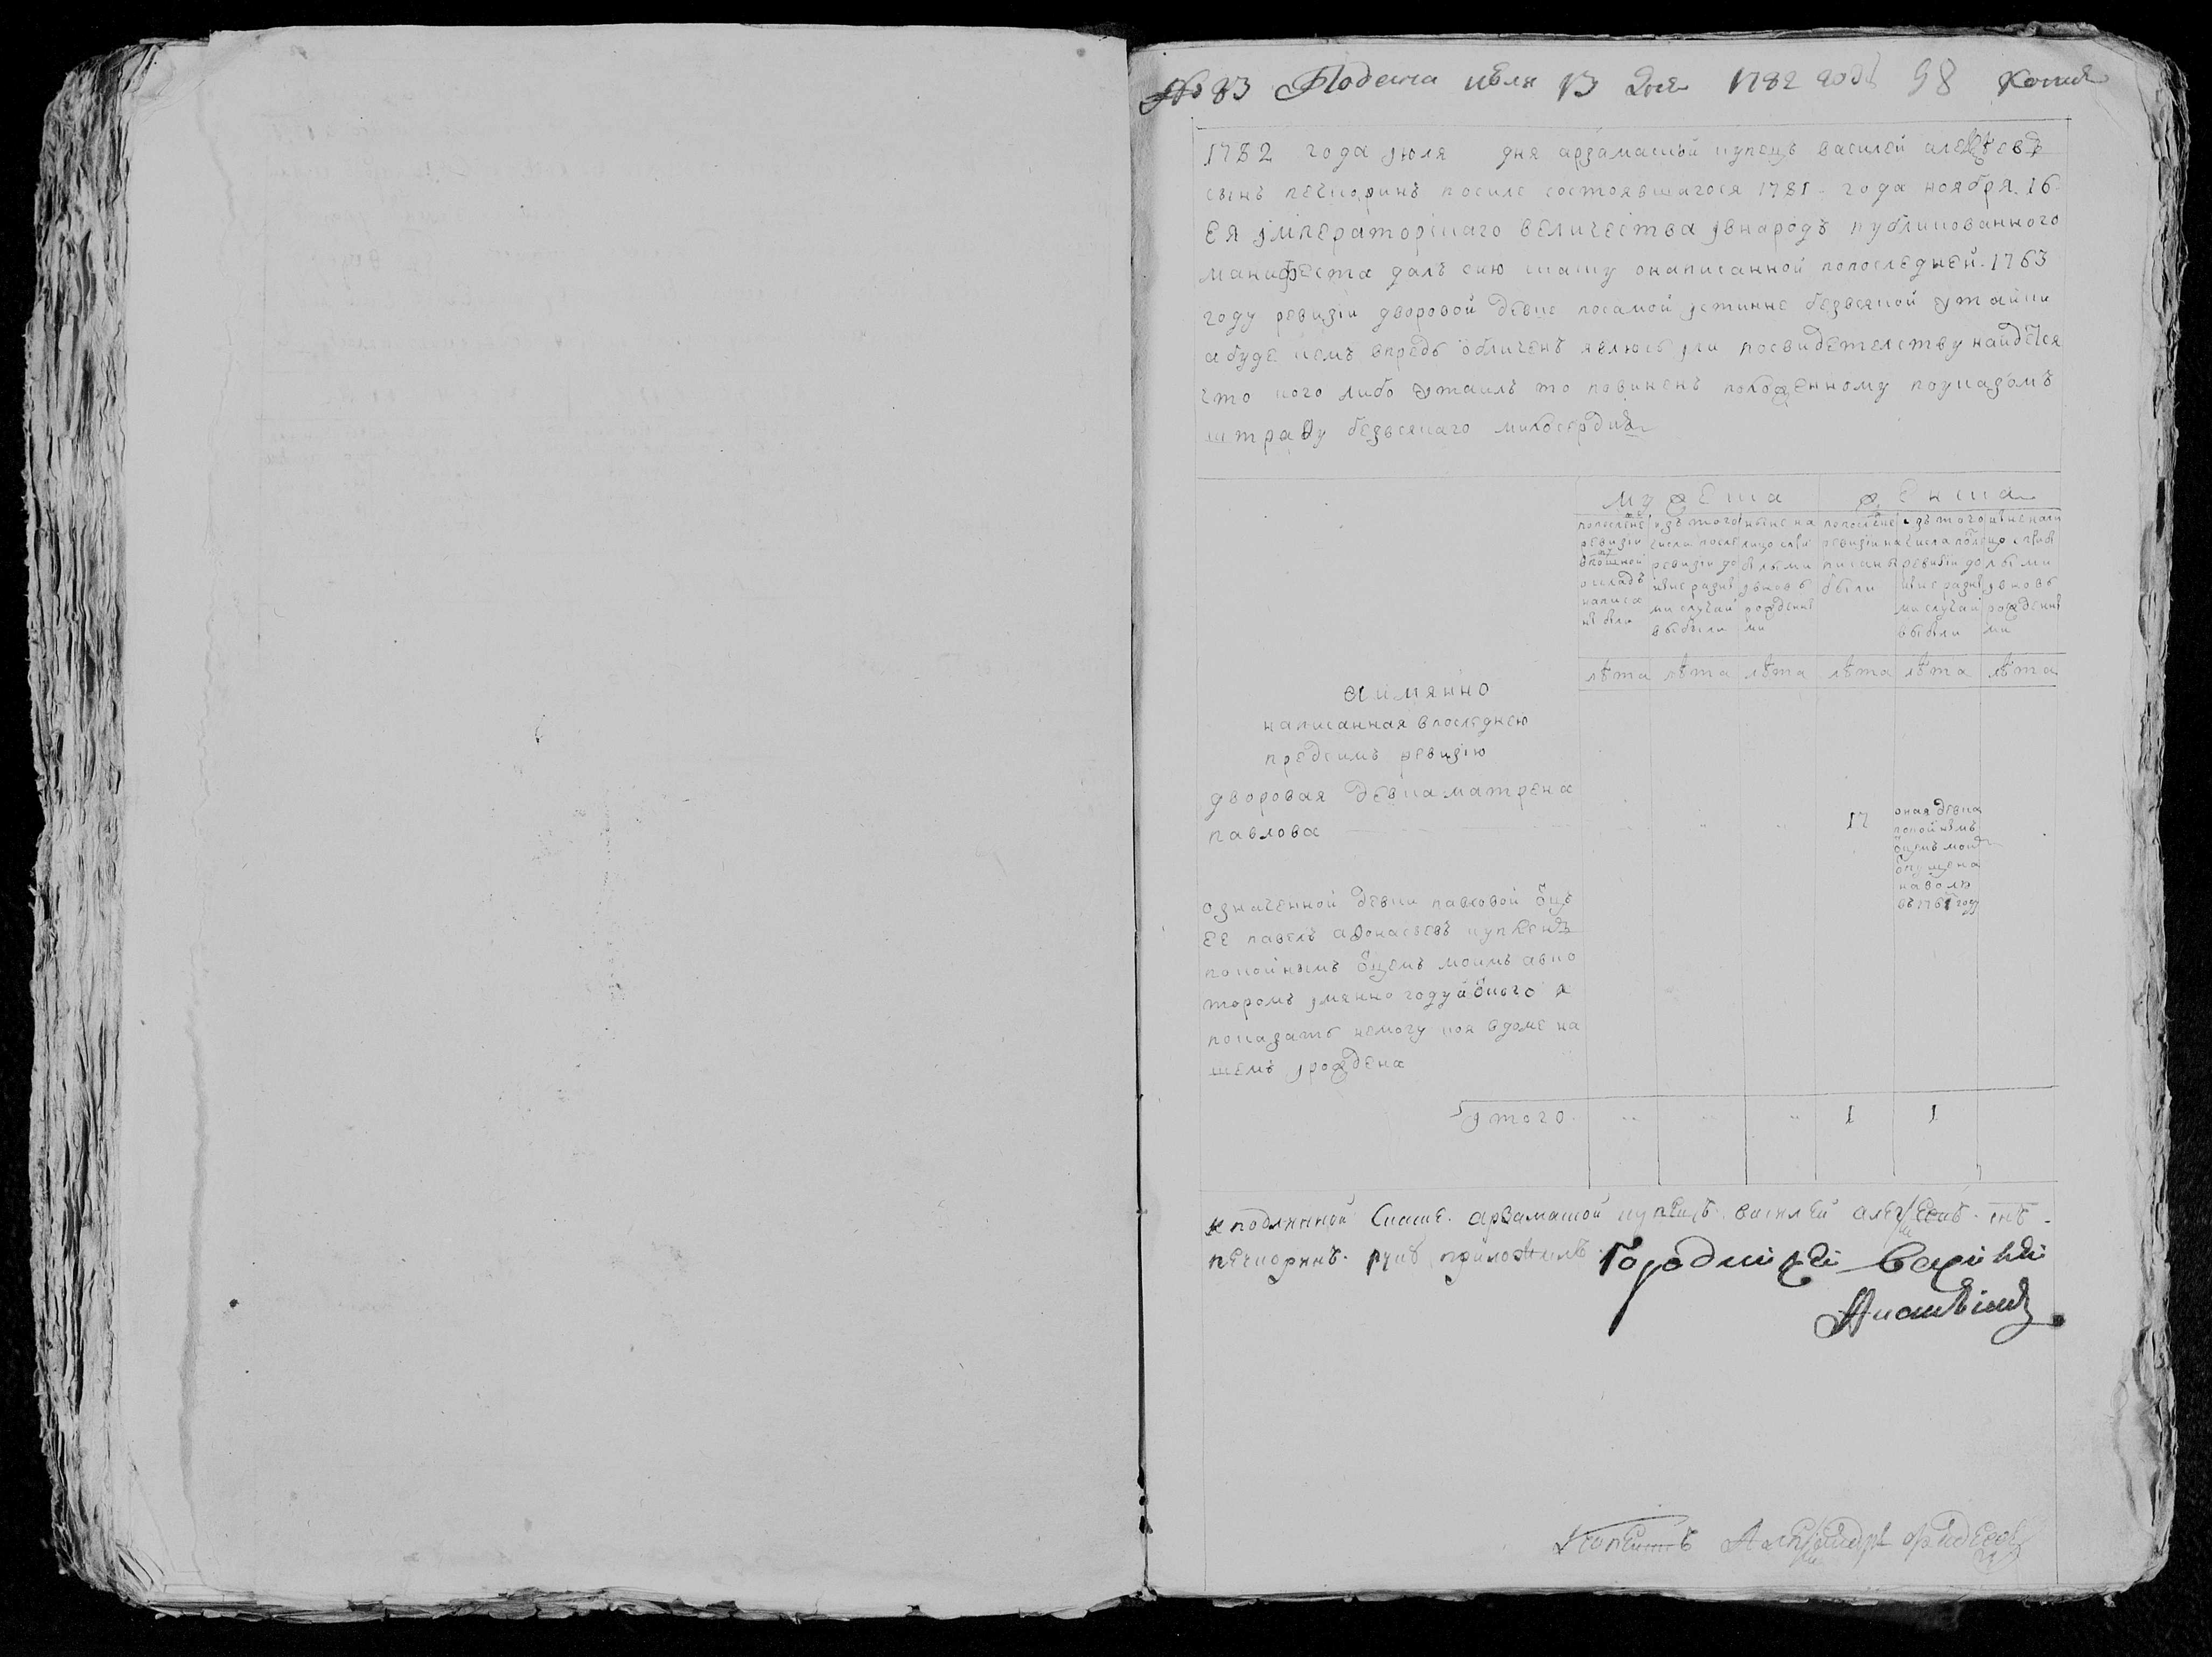 № 83 Подана июля 13 дня 1782 года 98 Копия
1782 года июля дня арзамаской купецъ василей алеѯѣевъ
сынъ печкоринъ посиле состоявшагося 1781 года ноября 16
ея имперaторскаго величества ивнародъ публикованного
манифеста далъ сию скаску онаписанной попоследней 1763
году ревизии дворовой девке посамой истинне безвсякой утайки
абуде чемъ впредь обличенъ явлюсь или посвидетелству найдется
что кого либо утаилъ то повиненъ положенному поуказомъ
штрафу безвсякаго милосердия
мужеска женска
попоследне ревизии вподушной окладъ написаны были
изъ того числа после ревизии до ныне разными случаи выбыли
ныне налицо сприбылыми ивновь рожденными
попоследне ревизии написаны были
изъ того числа после ревизии до ныне разными случаи выбыли
ныне налицо сприбылыми ивновь рожденными
лѣта лѣта лѣта лѣта лѣта лѣта
аимянно
написанная впоследнею
предсимъ ревизию
дворовая девка матрена
павлова 17
оная девка
покойнымъ
отцемъ моим
отпущена
наволю
въ 1767 году
означенной девки павловой отцъ
ее павелъ афонасьевъ купленъ
покойнымъ отцемъ моимъ авко
торомъ имянно году иукого я
показать немогу коя вдоме на
шемъ ирождена
итого 1 1
к подлинной скаске арзамаской купецъ василей алексеевъ снъ
печкоринъ руку приложилъ Городничей Василей
Копеистъ Александръ